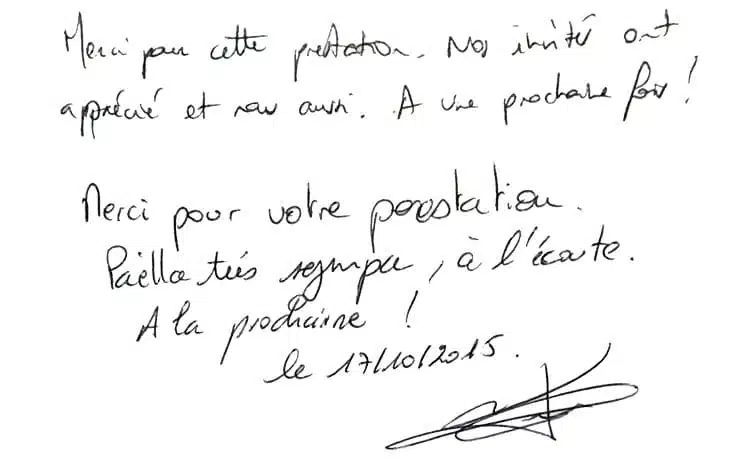 Merci pour cette prestation. Nos invité ont
apprécié et nous aussi. A une prochaine fois !
Merci pour votre prestation.
Paëlla très sympa, à l'écoute.
A la prochaine !
le 17/10/2015.